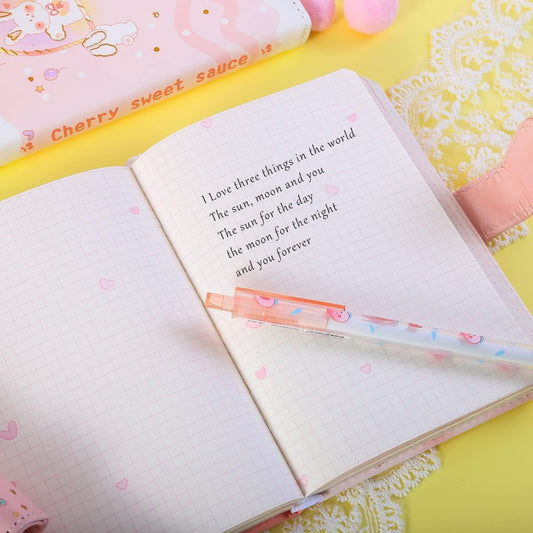 Cherry sweet sauce
I Love three things in the world
The sun, moon and you
The sun for the day
the moon for the night
and you forever